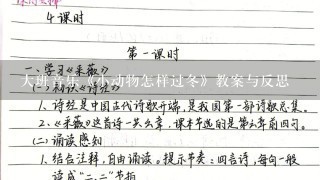 4课时
第一课时
一、学习《采薇》
(一)初识《诗经》
大班音乐《小动物怎样过冬》教案与反思
1、诗经是中国古代诗歌开端,是我国第一部诗歌总集。
2、《采薇》这首诗一共六章,课本节选的是第六章前四句。
(二)诵读感知
1、结合注释,自由诵读。提示节奏:四言诗,每句一般
读成"二、二"节拍